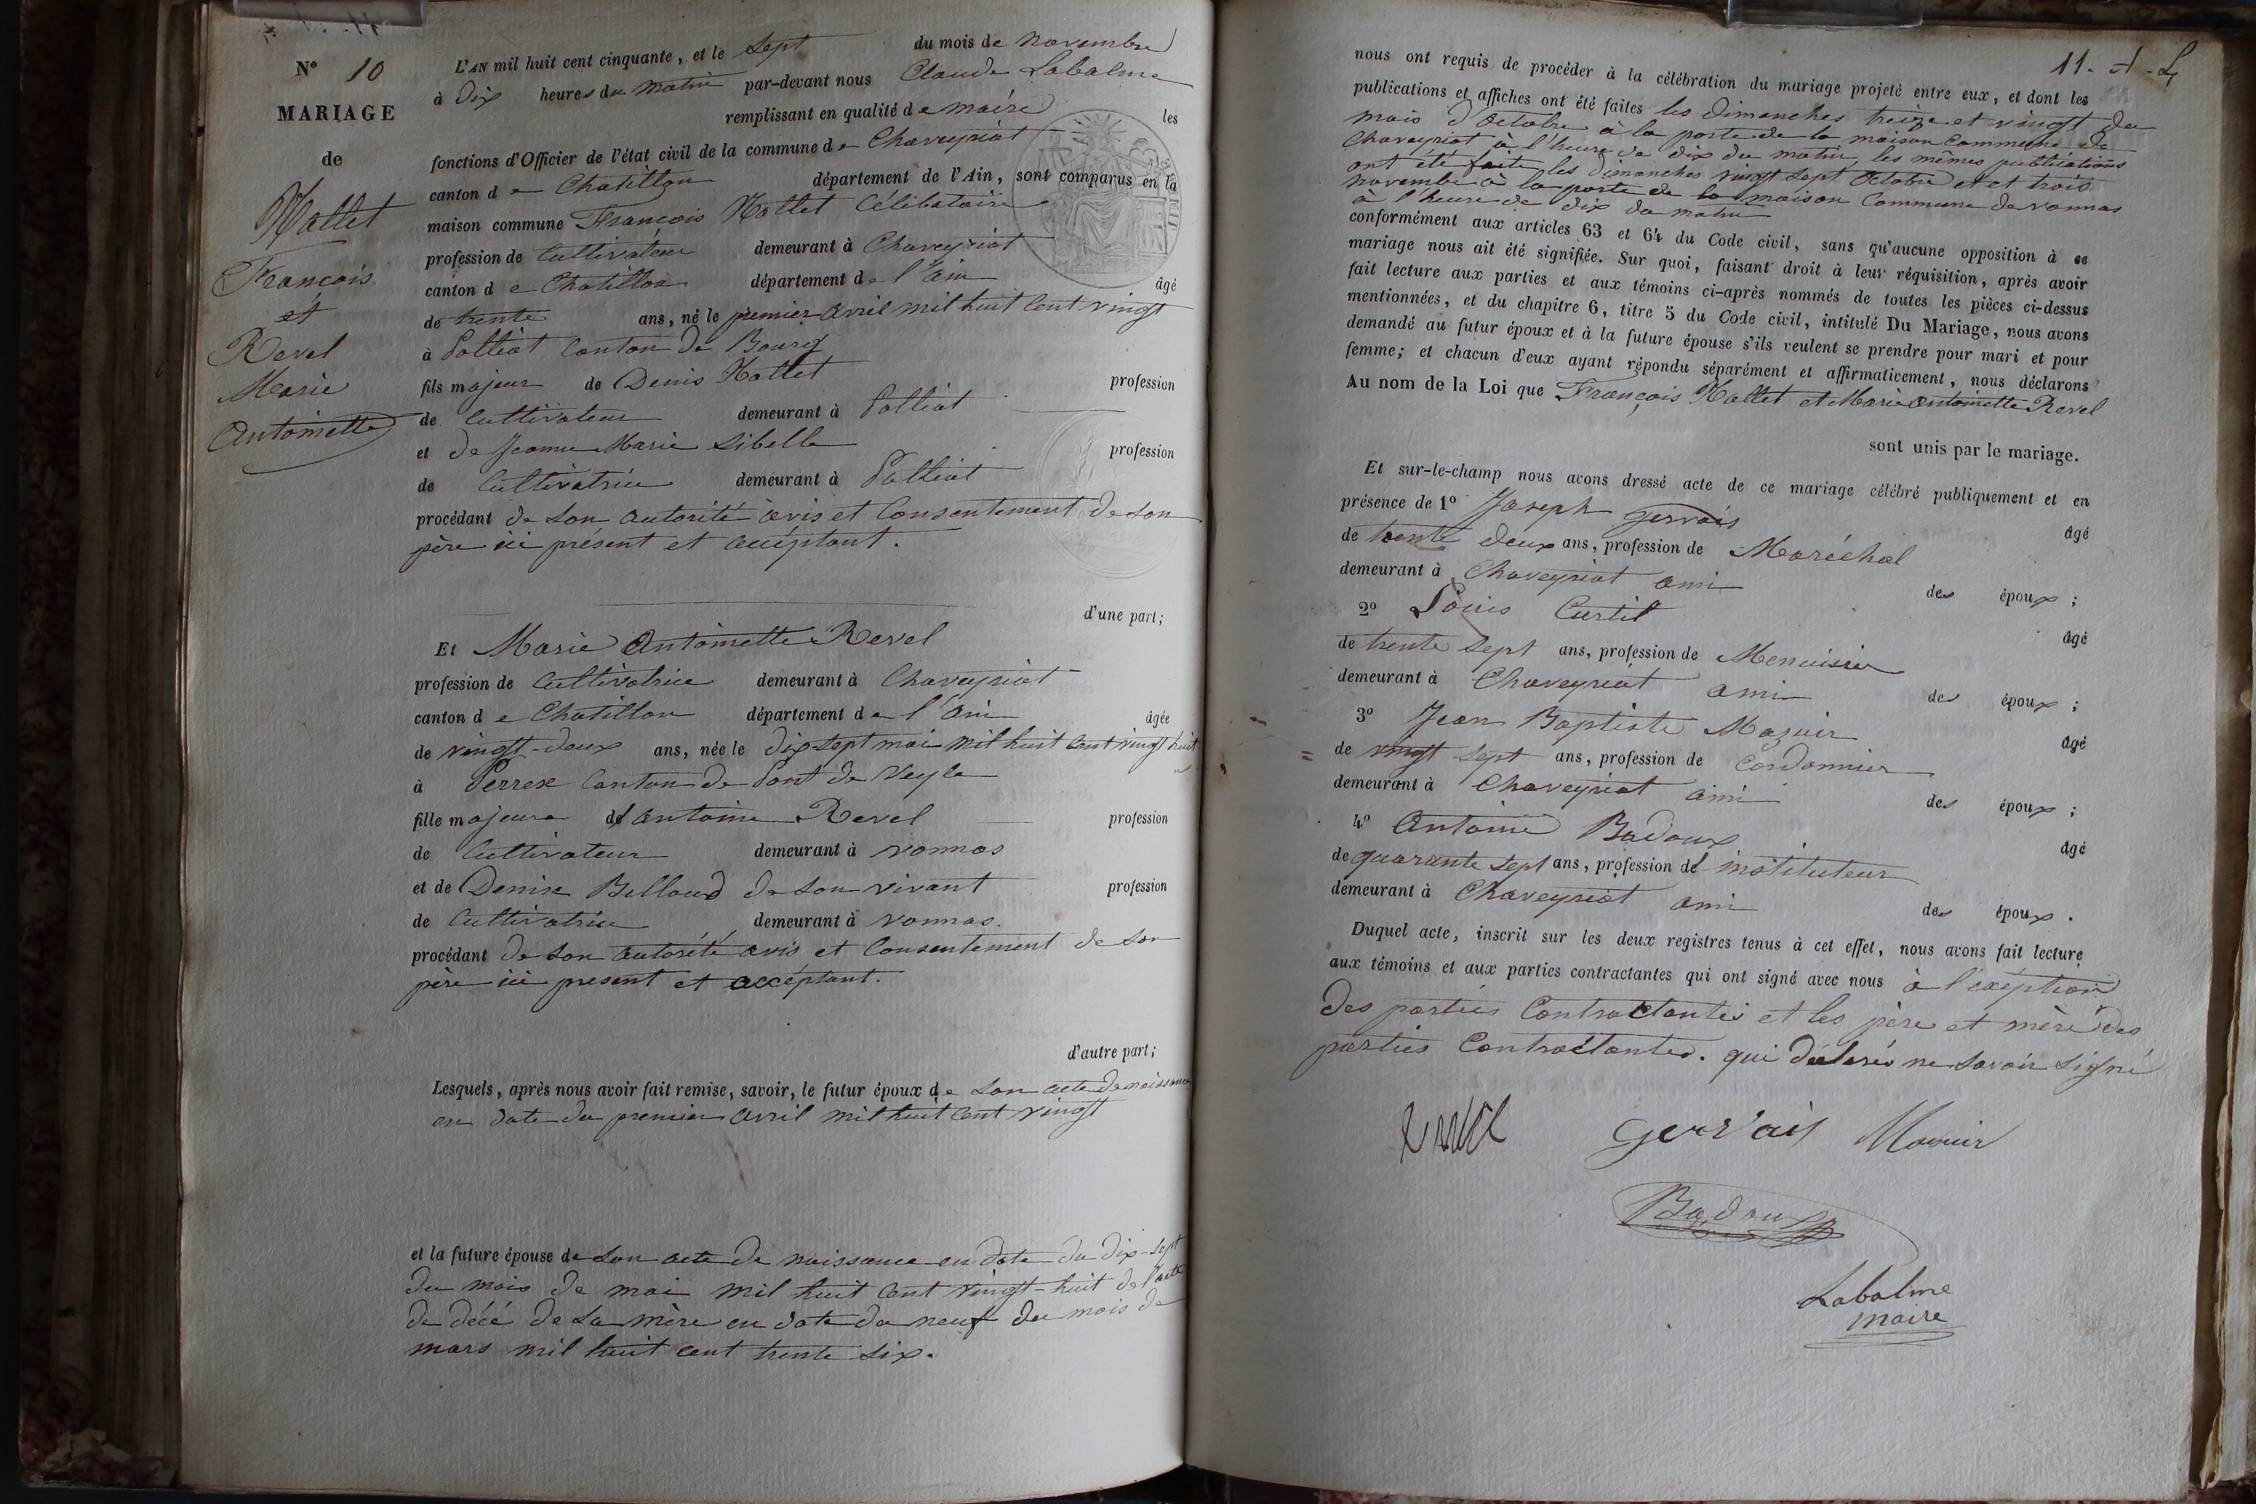 N° 10
MARIAGE
de
Hallet
François
et
Revel
Marie
Antoinette
L'AN mil huit cent cinquante, et le sept du mois de novembre
à dix heures du matin par-devant nous Claude Labalme
remplissant en qualité de maire les
fonctions d'Officier de l'état civil de la commune de Chaveyriat
canton de Chatillon département de l'Ain, sont comparus en la
maison commune François Hallet Célibataire
profession de Cultivateur demeurant à Chaveyriat
canton de Chatillon département de l'ain âgé
de trente ans, né le premier avril mil huit cent vingt
à Polliat Canton de Bourg
fils majeur de Denis Hallet profession
de Cultivateur demeurant à Polliat
et de Jeanne Marie Sibelle profession
de Cultivatrice demeurant à Polliat
procédant de son autorité avis et Consentement de son
père ici présent et acceptant.
d'une part;
Et Marie Antoinette Revel
profession de Cultivatrice demeurant à Chaveyriat
canton de Chatillon département de l'ain âgée
de vingt-deux ans, née le dix sept mai mil huit cent vingt huit
à Perrex Canton de Pont de Veyle
fille majeure d'antoine Revel profession
de Cultivateur demeurant à vonnas
et de Denise Billoud de son vivant profession
de Cultivatrice demeurant à vonnas.
procédant de son autorité avis et Consentement de son
père ici present et acceptant.
d'autre part;
Lesquels, après nous avoir fait remise, savoir, le futur époux de son acte de naissance
en date du premier avril mil huit cent vingt
et la future épouse de son acte de naissance en date du dix-sept
du mois de mai mil huit cent vingt-huit de l'acte
de décé de sa mère en date du neuf du mois de
mars mil huit cent trente six.
11.
nous ont requis de procéder à la célébration du mariage projeté entre eux, et dont les
publications et affiches ont été faites les dimanches treize et vingt du
mois d'Octobre à la porte de la maison Commune de
Chaveyriat à l'heure de dix du matin, les mêmes publications
ont été faite les dimanches vingt sept Octobre et et trois
novembre à la porte de la maison Commune de vonnas
à l'heure de dix du matin
conformément aux articles 63 et 64 du Code civil, sans qu'aucune opposition à ce
mariage nous ait été signifiée. Sur quoi, faisant droit à leur réquisition, après avoir
fait lecture aux parties et aux témoins ci-après nommés de toutes les pièces ci-dessus
mentionnées, et du chapitre 6, titre 5 du Code civil, intitulé Du Mariage, nous avons
demandé au futur époux et à la future épouse s'ils veulent se prendre pour mari et pour
femme; et chacun d'eux ayant répondu séparément et affirmativement, nous déclarons
Au nom de la Loi que François Hallet et Marie Antoinette Revel
sont unis par le mariage.
Et sur-le-champ nous avons dressé acte de ce mariage célébré publiquement et en
présence de 1° Joseph Gervais âgé
de trente deux ans, profession de Maréchal
demeurant à Chaveyriat ami des époux;
2° Louis Curtil âgé
de trente sept ans, profession de Menuisier
demeurant à Chaveyriat ami des époux;
3° Jean Baptiste Mazuir âgé
de vingt sept ans, profession de Cordonnier
demeurant à Chaveyriat ami des époux;
4° Antoine Badoux âgé
de quarante sept ans, profession d'instituteur
demeurant à Chaveyriat ami des époux.
Duquel acte, inscrit sur les deux registres tenus à cet effet, nous avons fait lecture
aux témoins et aux parties contractantes qui ont signé avec nous à l'exéption
des parties Contractantes et les père et mère des
parties Contractantes. qui déclaré ne savoir signé
Gervais Mazuir
Badoux
Labalme
maire